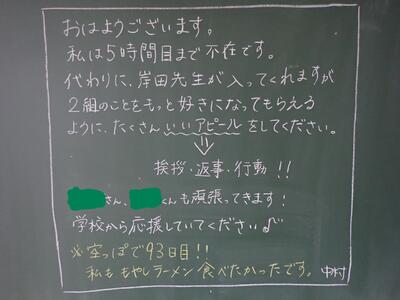 おはようございます。
私は5時間目まで不在です。
代わりに、岸田先生が入ってくれますが
2組のことをもっと好きになってもらえる
ように、たくさんいいアピールをしてください。
挨拶・返事・行動!!
さん、くんも頑張ってきます!
学校から応援していてください♪
※空っぽで93日目!!
私ももやしラーメン食べたかったです。
中村